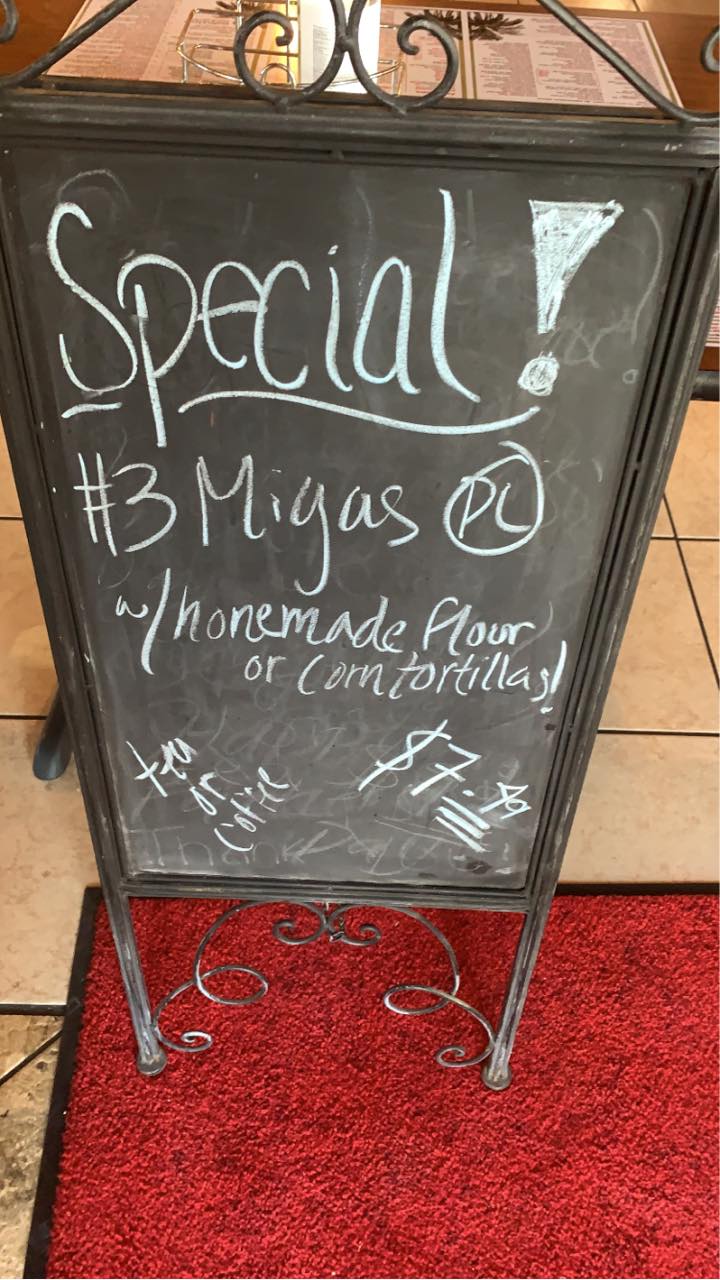 Special!
#3 Migas PC
w/homemade flour
or corn tortillas!
tea
or
Coffee
$7.